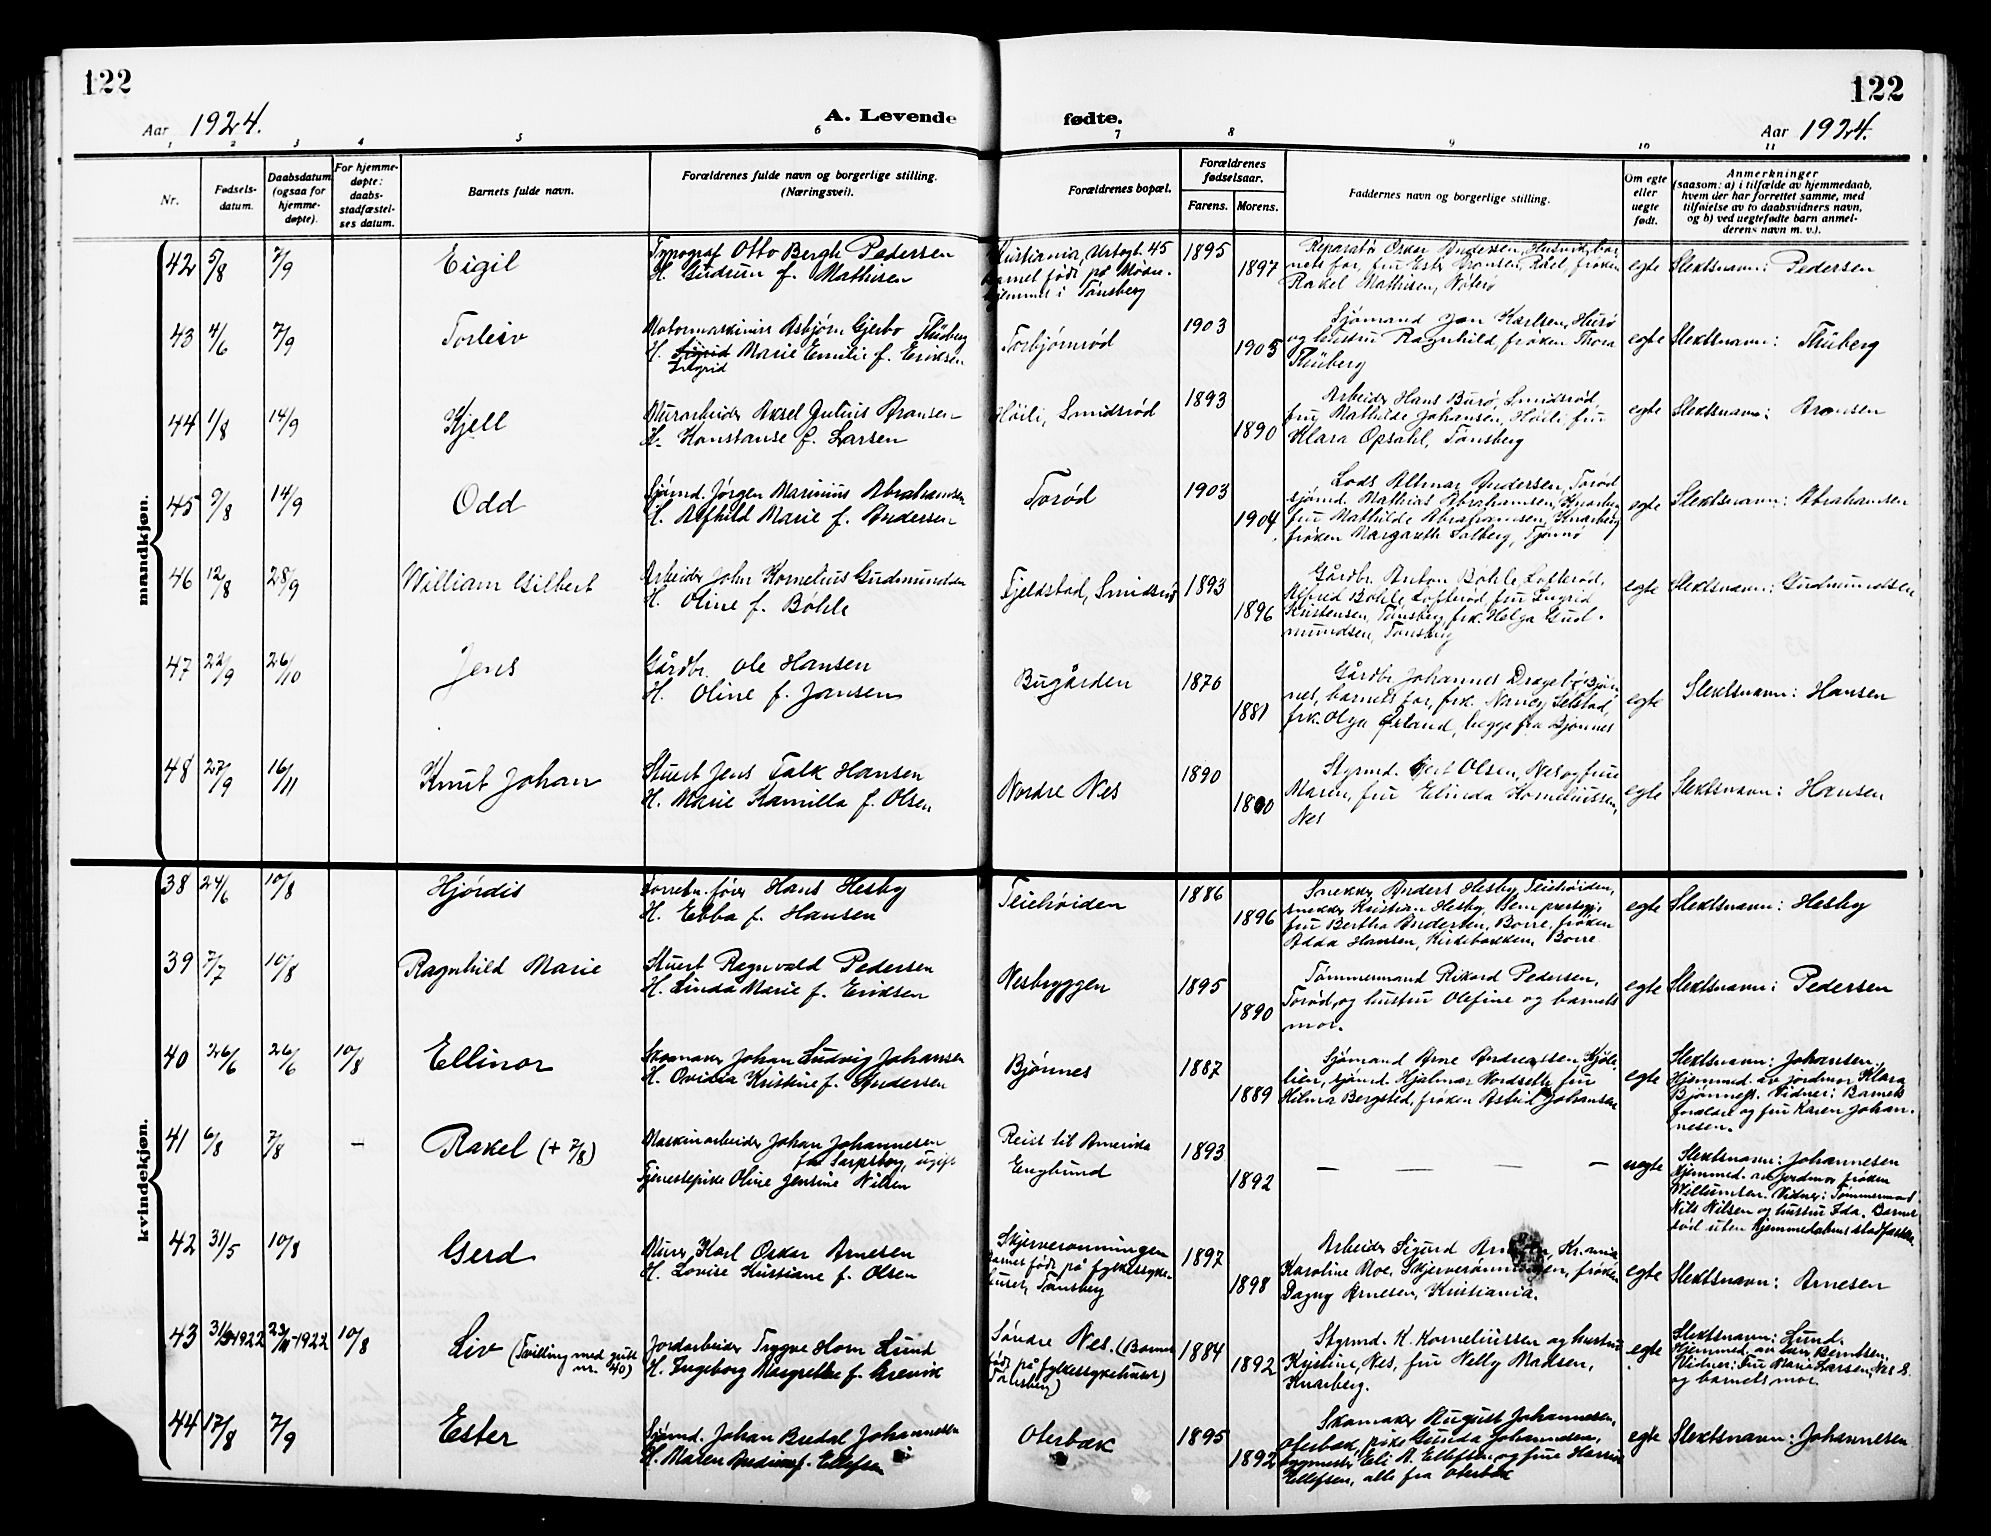 122
122
Aar 1924.
A. Levende
fødte.
Aar 1924.
1 2 3 4 5 6 7 8 9 10 11
Nr.
Fødsels-
datum.
Daabsdatum
(ogsaa for
hjemme-
døpte).
For hjemme-
døpte:
daabs-
stadfæstel-
ses datum.
Barnets fulde navn.
Forældrenes fulde navn og borgerlige stilling.
(Næringsvei).
Forældrenes bopæl.
Forældrenes
fødselsaar.
Farens. Morens.
Faddernes navn og borgerlige stilling.
Om egte
eller
uegte
født.
Anmerkninger
(saasom: a) i tilfælde av hjemmedaab,
hvem der har forrettet samme, med
tilføielse av to daabsvidners navn,
og b) ved uegtefødte barn anmel-
derens navn m. v.).
mandkjøn.
42 5/8 7/9 Eigil
Typograf Otto Bergh Pedersen
H. Gudrun f. Mathisen
Kristiania, Urtegt. 45
barnet født på Mødre-
hjemmet i Tønsberg
1895
1897
Reparatør Oskar Andersen, Husvik, bar-
nets far, fru Ester Aronsen, Råel, frøken
Rakel Mathisen, Nøterø
egte Slektsnavn: Pedersen
43 4/6 7/9 Torleiv
Motormaskinist Asbjørn Gjerbo Thüberg
H. Sigrid Marie Emilie f. Eriksen
Ingrid
Torbjørnrød
1903
1905
Sjømand Jon Karlsen, Husø
og hustru Ragnhild, frøken Thora
Thüberg
egte Slektsnavn: Thüberg
44 1/8 14/9 Kjell
Murarbeider Aksel Julius Aronsen
H. Konstanse f. Larsen
Høili, Smidsrød
1893
1890
Arbeider Hans Burø, Smidsrød
fru Mathilde Johansen, Høili, fru
Klara Opsahl, Tønsberg
egte Slektsnavn: Aronsen
45 9/8 14/9 Odd
Sjømd. Jørgen Marinius Abrahamsen
H. Alfhild Marie f. Andersen
Torød
1903
1904
Lods Altmar Andersen, Torød
sjømd. Mathias Abrahamsen, Knarberg
fru Mathilde Abrahamsen, Knarberg
frøken Margareth Solberg, Tjømø
egte Slektsnavn: Abrahamsen
46 12/8 28/9 William Gilbert
Arbeider John Kornelius Gudmundsen
H. Oline f. Bøhle
Fjeldstad, Smidsrød
1893
1896
Gårdbr. Anton Bøhle, Lofterød,
Alfred Bøhle, Lofterød, fru Ingrid
Kristensen, Tønsberg, frk. Helga Gud-
mundsen, Tønsberg
egte Slektsnavn: Gudmundsen
47 22/9 26/10 Jens
Gårdbr. Ole Hansen
H. Oline f. Jansen
Bugården
1876
1881
Gårdbr. Johannes Dragebø, Bjøn-
nes, barnets far, frk. Nancy Selstad,
frk. Olga Østand, begge fra Bjønnes
egte Slektsnavn: Hansen
48 27/9 16/11 Knut Johan
Stuert Jens Falk Hansen
H. Marie Kamilla f. Olsen
Nordre Nes
1890
Styrmd. Olsen, Nes og frue
Maren, fru Elinda Korneliussen,
Nes
egte Slektsnavn: Hansen
kvindekjøn.
38 24/6 10/8 Hjørdis
Forretn.fører Hans Hesby
H. Ebba f. Hansen
Teiehøiden
1886
1896
Snekker Anders Hesby, Teiehøiden,
snekker Kristian Hesby, Sem prestegj.,
fru Bertha Andersen, Borre, frøken
Adda Hansen, Kirkebakken, Borre
egte Slektsnavn: Hesby
39 7/7 10/8 Ragnhild Marie
Stuert Ragnvald Pedersen
H. Linda Marie f. Eriksen
Nesbryggen
1895
1890
Tømmermand Rikard Pedersen,
Torød, og hustru Olefine og barnets
mor.
egte Slektsnavn: Pedersen
40 26/6 26/6 10/8 Ellinor
Skomaker Johan Ludvig Johansen
H. Ovidia Kristine f. Andersen
Bjønnes
1887
1889
Sjømand Arne Andreassen Kjøle-
lien, sjømd. Hjalmar Nordseth, fru
Hilma Bergsted, frøken Astrid Johansen
egte
Slektsnavn: Johansen.
Hjemmed. av jordmor Klara
Bjønnes. Vidner: Barnets
foreldre og fru Karen Johan-
nesen.
41 6/8 7/8 – Rakel (+ 7/8)
Maskinarbeider Johan Johannesen
fra Sarpsborg, ugift
Tjenestepike Oline Jensine Nilsen
Reist til Amerika
Englund
1893
1892
– – – – –
uegte
Slektsnavn: Johannesen
Hjemmed. av jordmor frøken
Willumsen. Vidner: Tømmermand
Nils Nilsen og hustru Ida. Barnet
død uten hjemmedåbens stadfæstelse
42 31/5 10/8 Gerd
Murer Karl Oskar Arnesen
H. Lovise Kristiane f. Olsen
Skjerverønningen
Barnet født på fylkessyke-
huset, Tønsberg
1897
1898
Arbeider Sigurd Arnesen, Kr.ania
Karoline Moe, Skjerverønningen, frøken
Dagny Arnesen, Kristiania.
egte Slektsnavn: Arnesen
43 1922 23/11-1922 10/8 Liv (Tvilling med gutt
nr. 40)
Jordarbeider Trygve Horn Lund
H. Ingeborg Margrethe f. Grevik
Søndre Nes. (Barnet
født på fylkessykehuset,
Tønsberg)
1884
1892
Styrmd. K. Korneliussen og hustru
Kristine, Nes, fru Nelly Madsen,
Knarberg.
egte
Slektsnavn: Lund.
Hjemmed. av Berntsen.
Vidner: Fru Marie Larsen, Nes S.
og barnets mor.
44 17/8 7/9 Ester
Sjømd. Johan Bredal Johannesen
H. Maren f. Ellefsen
Oterbæk
1895
1892
Skomaker August Johannesen,
Oterbæk, pike Gunda Johannesen,
bygmester Eli A. Ellefsen og frue
Ellefsen, alle fra Oterbæk
egte Slektsnavn: Johannesen